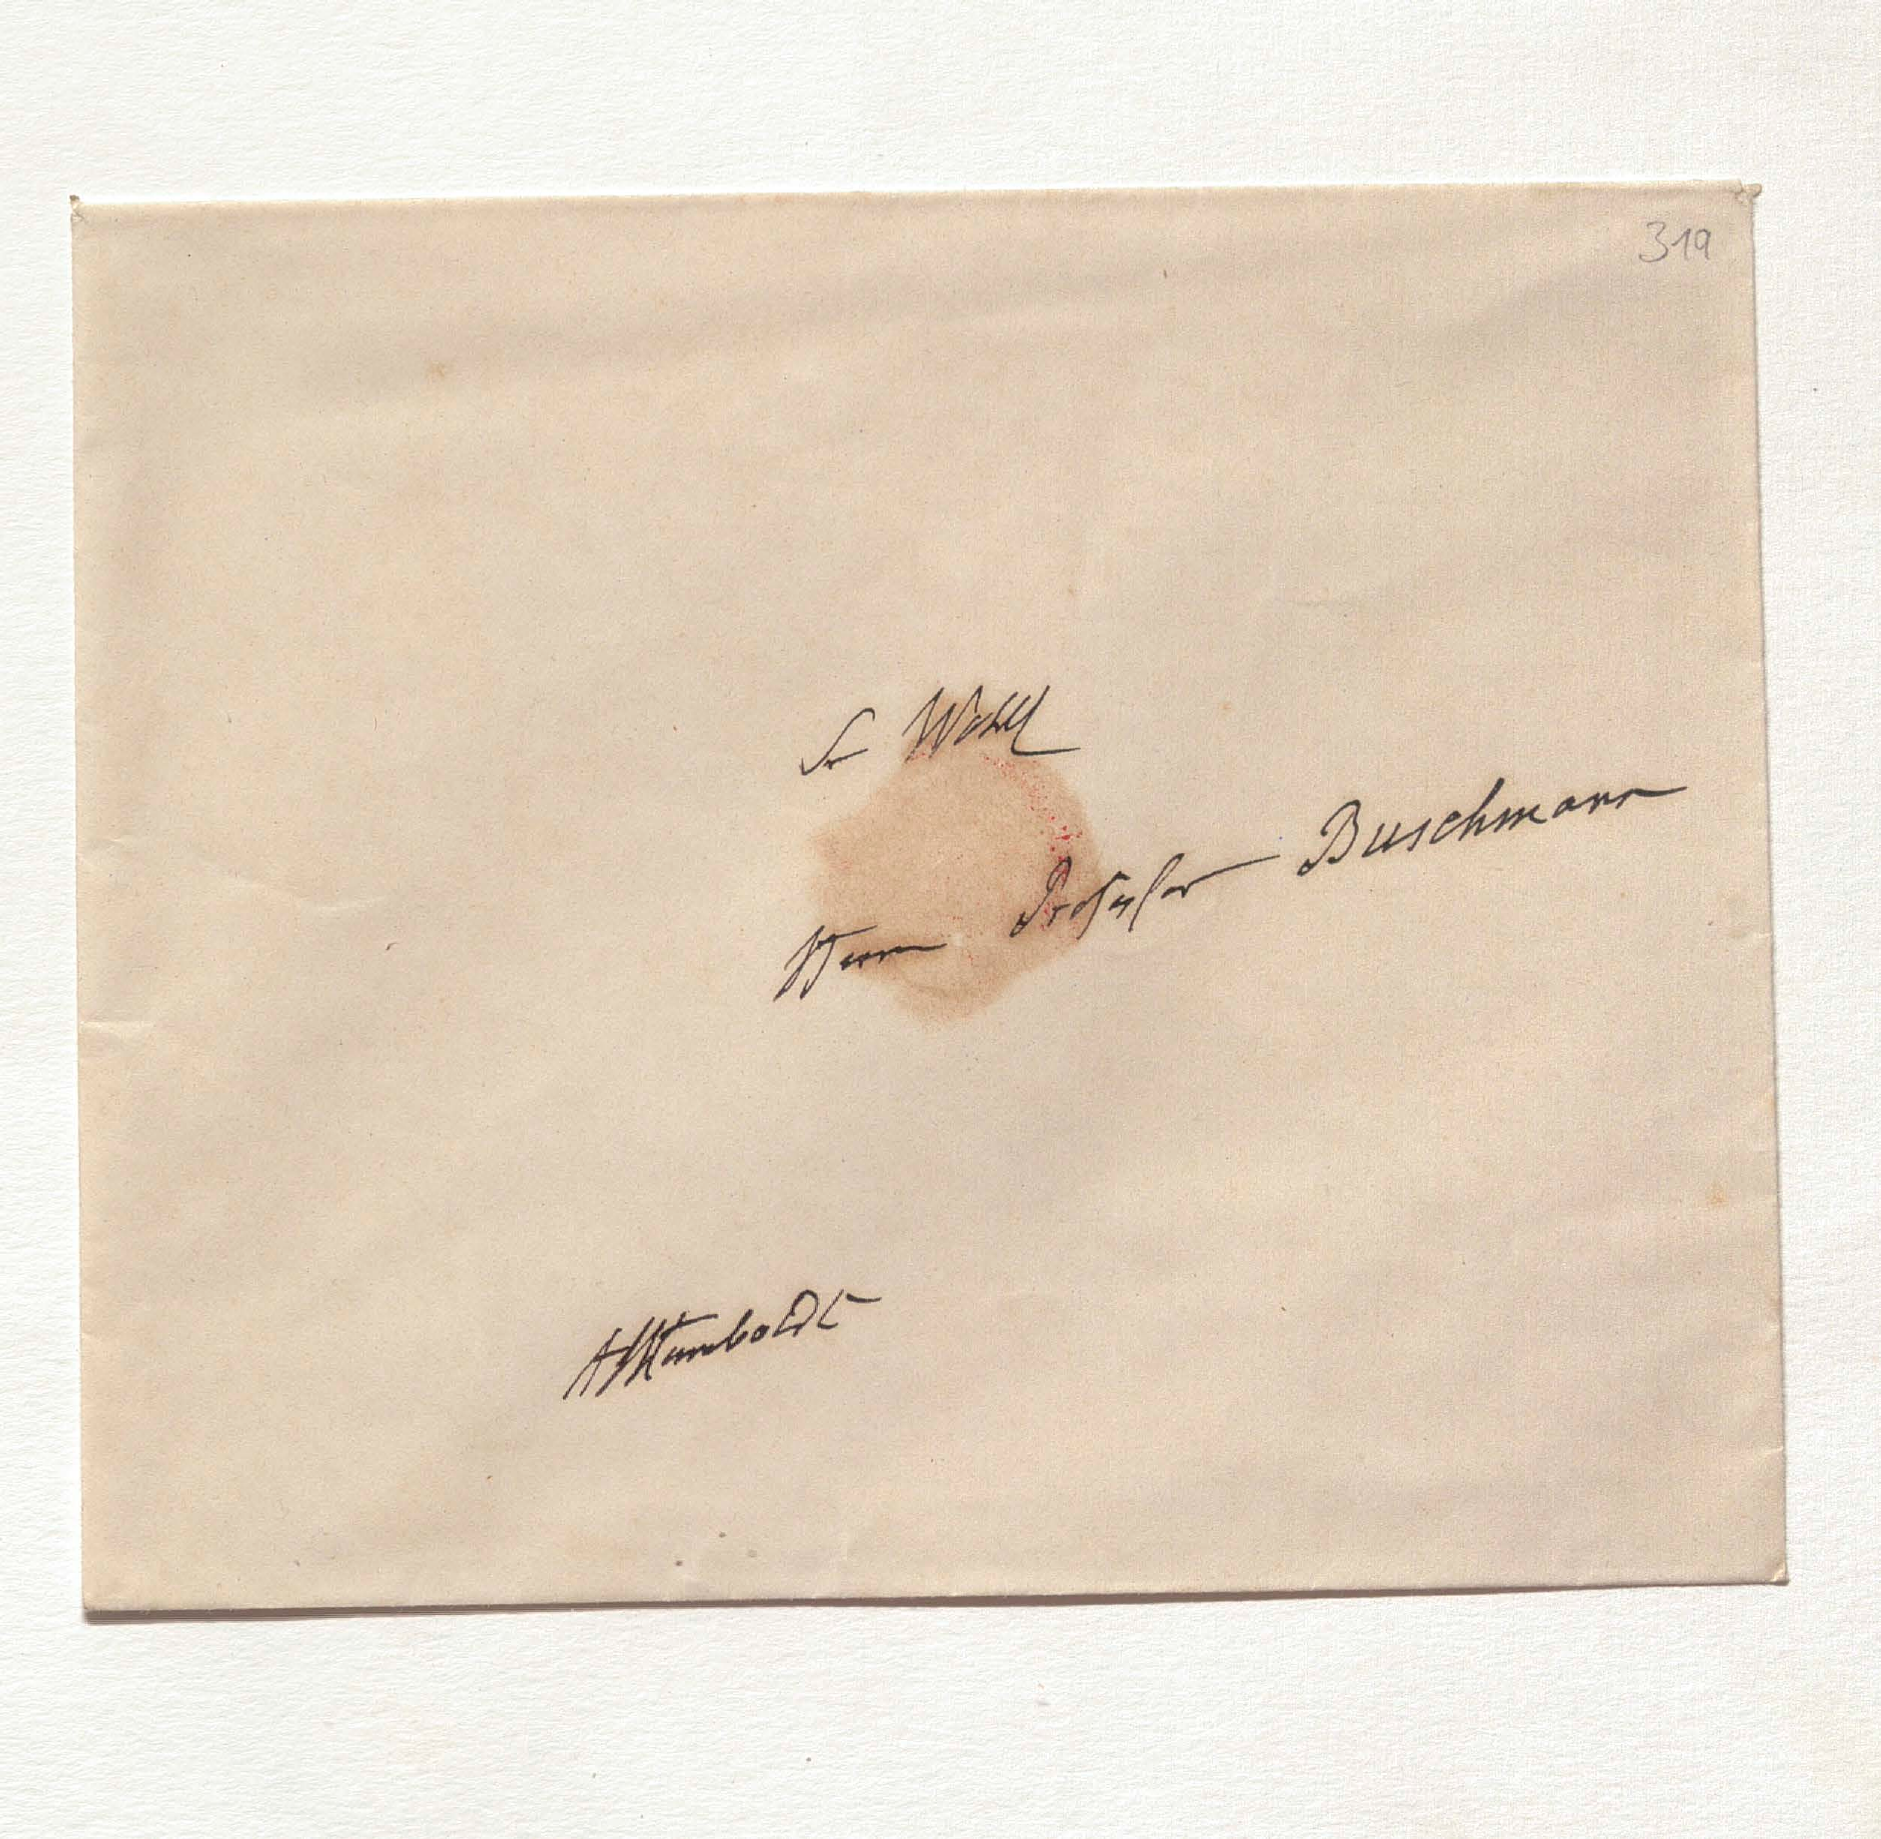 319
Sr Wohl
Herrn Professor Buschmann
AvHumboldt